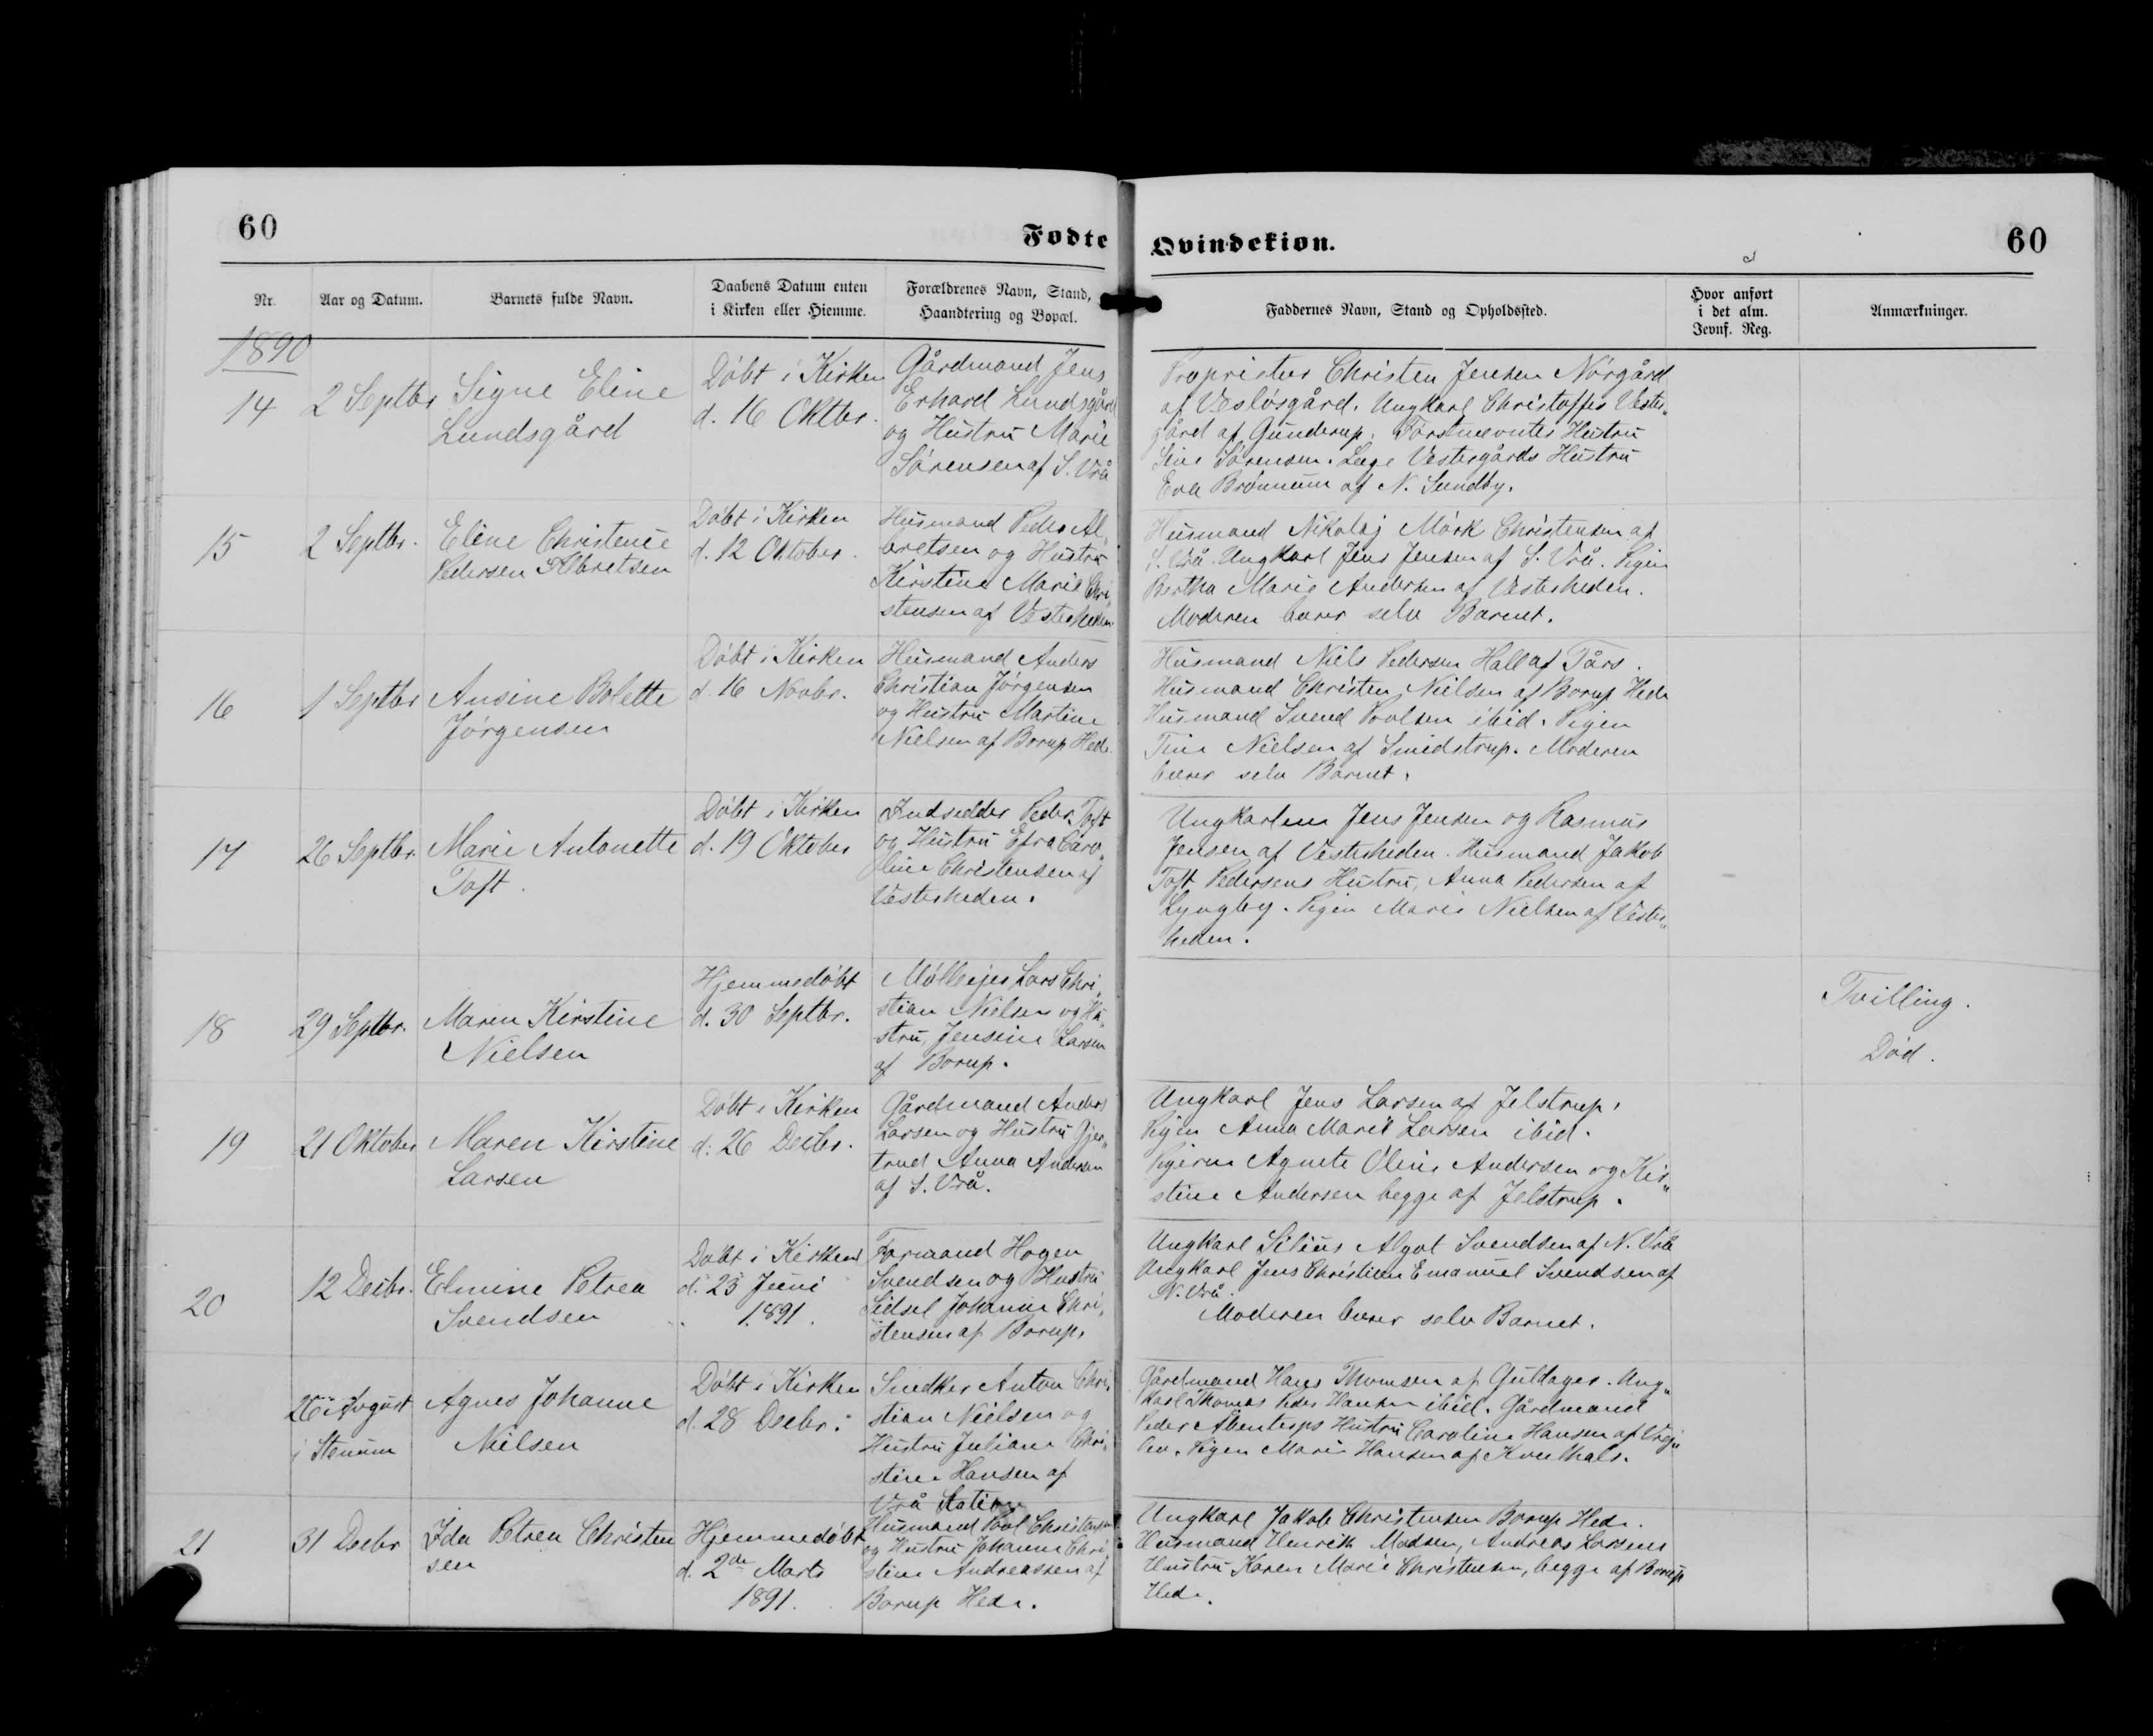 60
Fodte
Qvindekion.
60
Nr.
Aar og Datum.
Barnets fulde Navn.
Daabens Datum enten
i Kirken eller Hiemme.
Forældrenes Navn, Stand,
Haandtering og Bopæl.
Faddernes Navn, Stand og Opholdssted.
Hvor anfort
i det alm.
Jevnf. Reg.
Anmærkninger.
1890
14
2 Septbr
Signe Eline
Lundsgård
Döbt i Kirken
d. 16 Oktbr.
Gårdmand Jens
Erhard Lundsgård
og Hustru Marie
Sörensen af S. Vrå
Proprietær Christen Jensen Nörgård
af Veslösgård. Ungkarl Christoffer Vester„
gård af Gunderup. Hustru
Sine Sörensen. Læge Vestergårds Hustru
Eva Brönnum af N. Sundby.
15
2 Septbr.
Eline Christence
Pedersen Albretsen
Döbt i Kirken
d. 12 Oktober.
Husmand Peder Al„
bretsen og Hustru
Kirstine Marie Chri„
stensen af Vesterheden
Husmand Nikolaj Mörk Christensen af
S. Vrå. Ungkarl Jens Jensen af S. Vrå. Pigen
Bertha Marie Andersen af Vesterheden.
Moderen bærer selv Barnet.
16
1 Septbr
Ansine Bolette
Jörgensen
Döbt i Kirken
d. 16 Novbr.
Husmand Anders
Christian Jörgensen
og Hustru Martine
Nielsen af Borup Hede.
Husmand Niels Pedersen Hall af Tårs.
Husmand Christen Nielsen af Borup Hede
Husmand Svend Poulsen ibid. Pigen
Tine Nielsen af Smidstrup. Moderen
bærer selv Barnet.
17
26 Septbr.
Marie Antonette
Toft.
Döbt i Kirken
d. 19 Oktober
Indsidder Peder Toft
og Hustru Efra Caro„
line Christensen af
Vesterheden.
Ungkarlene Jens Jensen og Rasmus
Jensen af Vesterheden. Husmand Jakob
Toft Pedersens Hustru, Anna Pedersen af
Lyngby. Pigen Marie Nielsen af Vester„
heden.
18
29 Septbr.
Maren Kirstine
Nielsen
Hjemmedöbt
d. 30 Septbr.
Mölleejer Lars Chri„
stian Nielsen og Hu„
stru, Jensine Larsen
af Borup.
Tvilling.
Död.
19
21 Oktober
Maren Kirstine
Larsen
Döbt i Kirken
d. 26 Decbr.
Gårdmand Anders
Larsen og Hustru Gjer„
trud Anna Andersen
af S. Vrå.
Ungkarl Jens Larsen af Jelstrup.
Pigen Anna Marie Larsen ibid.
Pigerne Agnete Oline Andersen og Kir„
stine Andersen begge af Jelstrup.
20
12 Decbr.
Elmine Petrea
Svendsen
Döbt i Kirken
d. 23 Juni
1891.
Formand Hogen
Svendsen og Hustru
Sidsel Johanne Chri„
stensen af Borup.
Ungkarl Silius Algot Svendsen af N. Vrå
Ungkarl Jens Christian Emanuel Svendsen af
N. Vrå.
Moderen bærer selv Barnet.
26 August
i Stenum
Agnes Johanne
Nielsen
Döbt i Kirken
d. 28 Decbr.
Snedker Anton Chri„
stian Nielsen og
Hustru Juliane Chri„
stine Hansen af
Vrå Station
Gårdmand Hans Thomsen af Guldager. Ung„
karl Thomas Peder Hansen ibid. Gårdmand
Peder Abentorps Hustru Caroline Hansen af Vrej„
lev. Pigen Marie Hansen af Kvolhals.
21
31 Decbr
Ida Petrea Christen
sen
Hjemmedöbt
d. 2de Marts
1891.
Husmand Poul Christensen
og Hustru Johanne Chri„
stine Andreassen af
Borup Hede.
Ungkarl Jakob Christensen Borup Hede.
Husmand Henrik Madsen, Andreas Larsens
Hustru Karen Marie Christensen, begge af Borup
Hede.